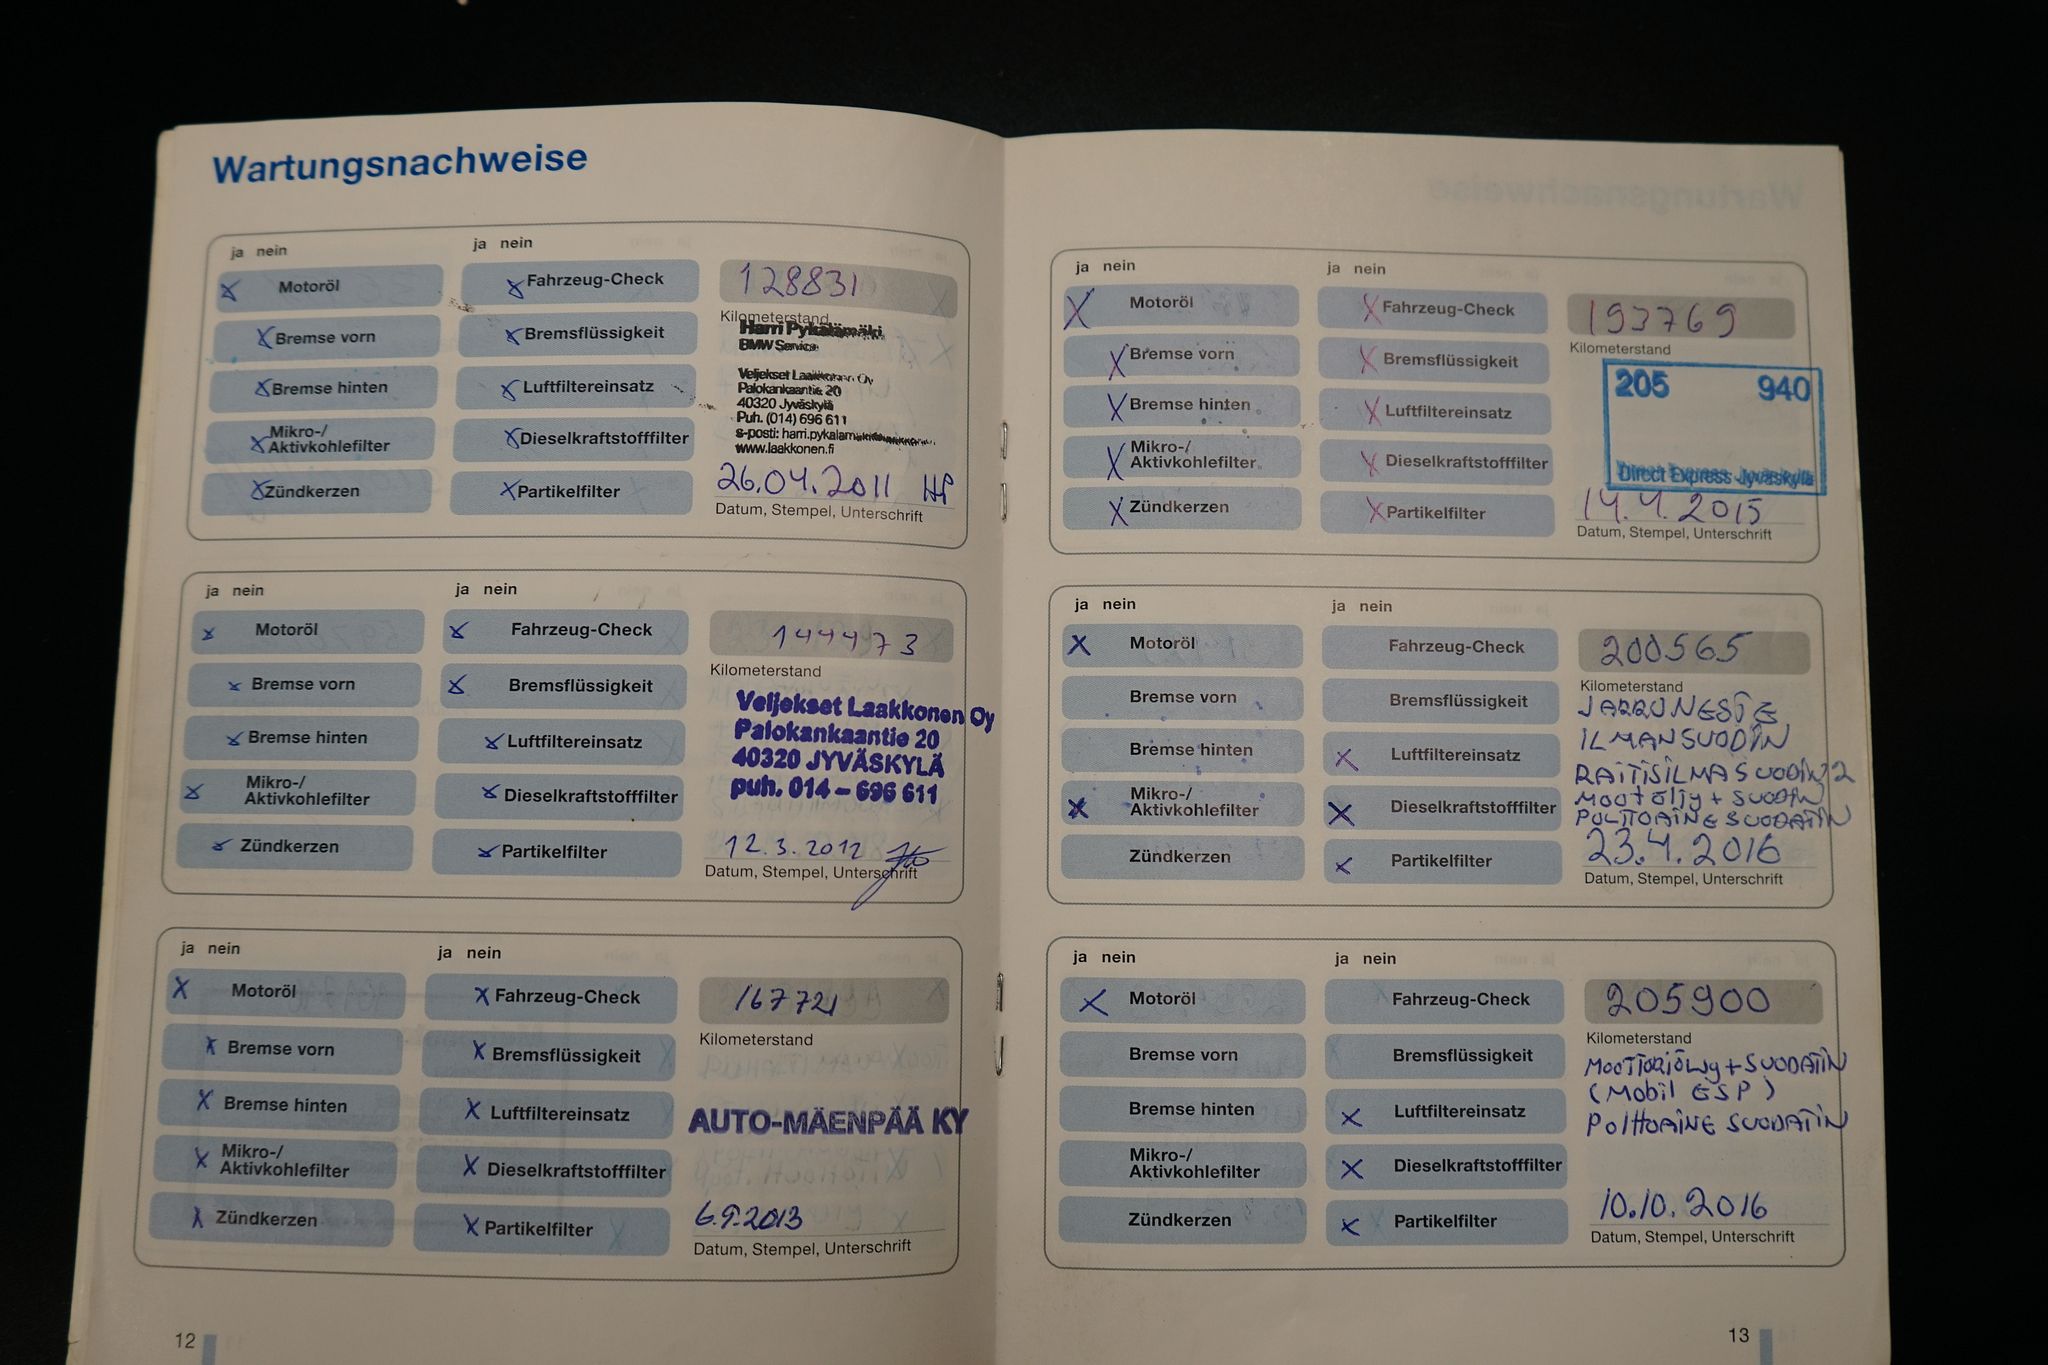 Wartungsnachweise
ja nein
ja nein
Motoröl
Bremse vorn
Bremse hinten
Mikro-/
Aktivkohlefilter
Zündkerzen
Fahrzeug-Check
Bremsflüssigkeit
Luftfiltereinsatz
Dieselkraftstofffilter
Partikelfilter
128831
Kilometerstand
Harri Pykälämäki
BMW Service
Veljekset Laakkonen Oy
Palokankaantie 20
40320 Jyväskylä
Puh. (014) 696 611
s-posti: harri.pykalamaki
www.laakkonen.fi
26.04.2011 HP
Datum, Stempel, Unterschrift
ja nein
ja nein
Motoröl
Bremse vorn
Bremse hinten
Mikro-/
Aktivkohlefilter
Zündkerzen
Fahrzeug-Check
Bremsflüssigkeit
Luftfiltereinsatz
Dieselkraftstofffilter
Partikelfilter
144473
Kilometerstand
Veljekset Laakkonen Oy
Palokankaantie 20
40320 JYVÄSKYLÄ
puh. 014 - 696 611
12.3.2012
Datum, Stempel, Unterschrift
ja nein
ja nein
Motoröl
Bremse vorn
Bremse hinten
Mikro-/
Aktivkohlefilter
Zündkerzen
Fahrzeug-Check
Bremsflüssigkeit
Luftfiltereinsatz
Dieselkraftstofffilter
Partikelfilter
167721
Kilometerstand
AUTO-MÄENPÄÄ KY
6.9.2013
Datum, Stempel, Unterschrift
12
ja nein
ja nein
Motoröl
Bremse vorn
Bremse hinten
Mikro-/
Aktivkohlefilter
Zündkerzen
Fahrzeug-Check
Bremsflüssigkeit
Luftfiltereinsatz
Dieselkraftstofffilter
Partikelfilter
193769
Kilometerstand
205 940
Direct Express Jyväskylä
14.4.2015
Datum, Stempel, Unterschrift
ja nein
ja nein
Motoröl
Bremse vorn
Bremse hinten
Mikro-/
Aktivkohlefilter
Zündkerzen
Fahrzeug-Check
Bremsflüssigkeit
Luftfiltereinsatz
Dieselkraftstofffilter
Partikelfilter
200565
Kilometerstand
JARRUNESTE
ILMANSUODIN
RAITISILMASUODIN 2
MOOTÖLJY + SUODIN
POLTTOAINESUODATIN
23.4.2016
Datum, Stempel, Unterschrift
ja nein
ja nein
Motoröl
Bremse vorn
Bremse hinten
Mikro-/
Aktivkohlefilter
Zündkerzen
Fahrzeug-Check
Bremsflüssigkeit
Luftfiltereinsatz
Dieselkraftstofffilter
Partikelfilter
205900
Kilometerstand
MOOTTORIÖLJY + SUODATIN
(Mobil ESP)
POLTTOAINE SUODATIN
10.10.2016
Datum, Stempel, Unterschrift
13